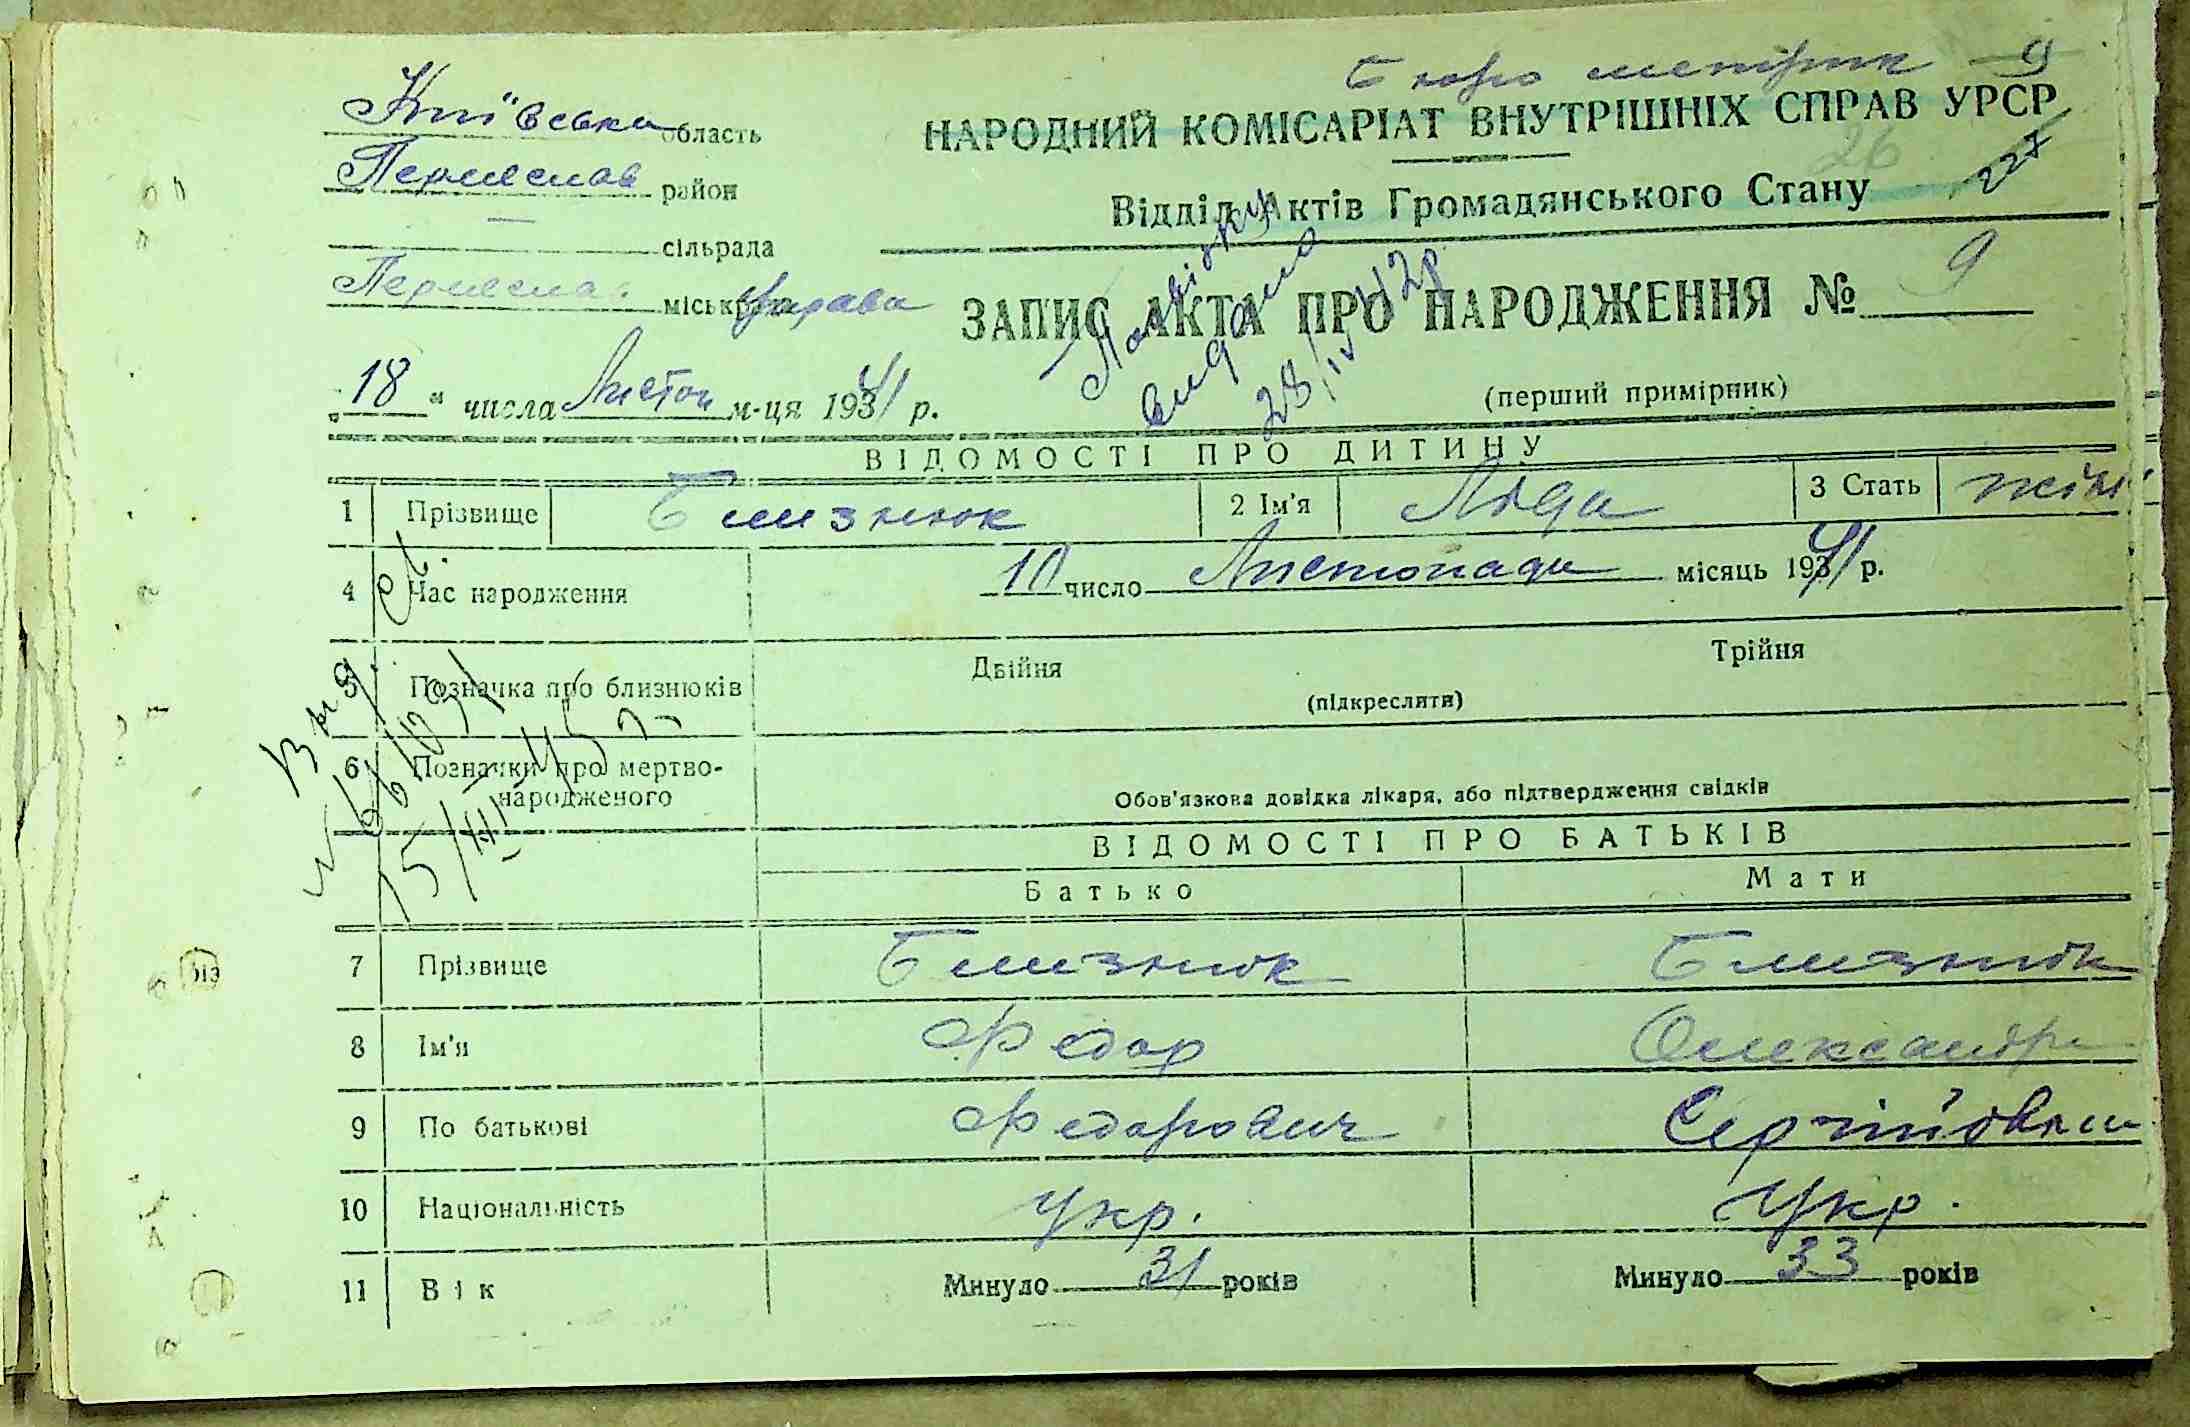 Бюро метрик 9
Київська область
НАРОДНИЙ КОМІСАРІАТ ВНУТРІШНІХ СПРАВ УРСР
26
227
Переяслав район
Відділ Актів Громадянського Стану
сільрада
Переяслав міськ управа
ЗАПИС АКТА ПРО НАРОДЖЕННЯ № 9
видано
28/IV 42р
„18“ числа Листоп м-ця 1941 р.
(перший примірник)
ВІДОМОСТІ ПРО ДИТИНУ
1 Прізвище Близнюк 2 Ім'я Ліда 3 Стать жін
4 Час народження 10 число Листопада місяць 1941 р.
5 Позначка про близнюків Двійня Трійня
(підкреслити)
6 Позначки про мертво-
народженого
Обов'язкова довідка лікаря, або підтвердження свідків
ВІДОМОСТІ ПРО БАТЬКІВ
Батько Мати
7 Прізвище Близнюк Близнюк
8 Ім'я Федор Олександра
9 По батькові Федорович Сергіївна
10 Національність Укр. Укр.
11 Вік Минуло 31 років Минуло 33 років